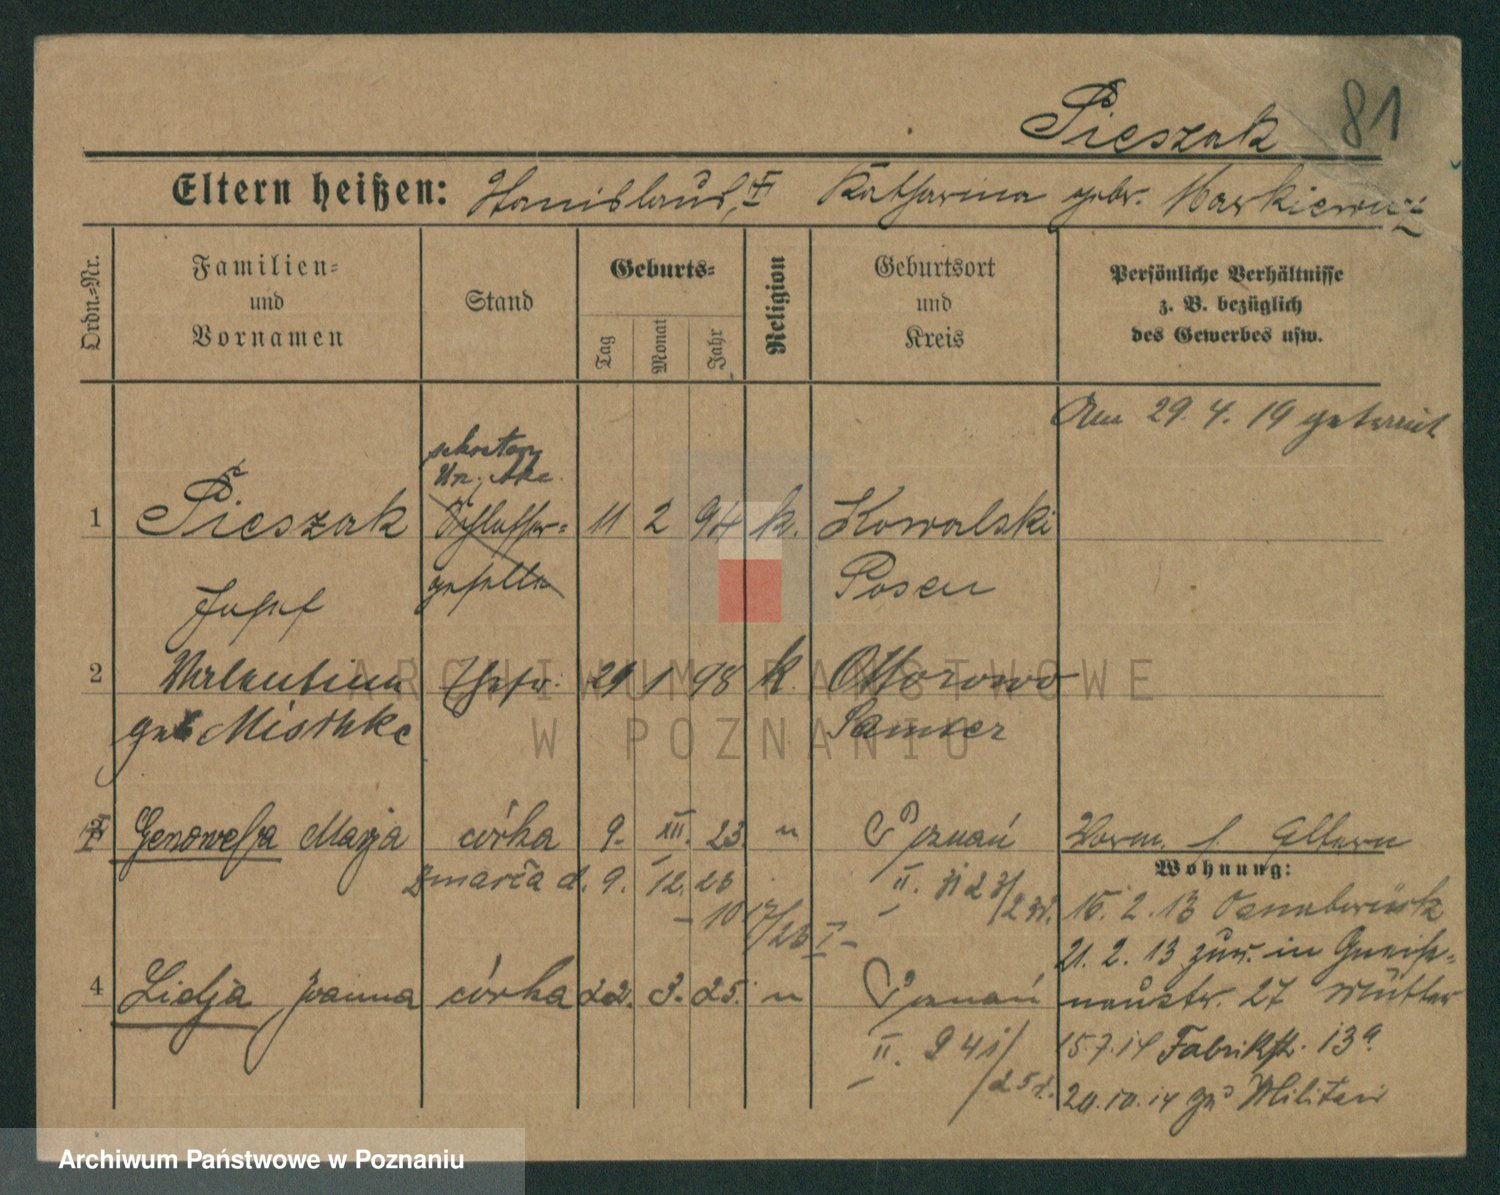 81
Pieszak
Eltern heißen: Stanislaus, Katharina gebr. Markiewicz
Ordn.-Nr.
Familien-
und
Vornamen
Stand
Geburts-
Tag
Monat
Jahr
Religion
Geburtsort
und
Kreis
Persönliche Verhältnisse
z. B. bezüglich
des Gewerbes usw.
Am 29. 4. 19 getraut
sekretarz
1 Pieszak Schlosser- 11 2 94 k. Kowalski
Josef geselle Posen
2 Valentina Ehefr. 29 1 98 k. Ottorowo
geb Mischke Samter
Genowefa Marja córka 9. XII. 23. " Poznań Vorm. s. Eltern
zmarła d. 9. 12. 23
Wohnung:
15. 2. 13 Osnabrück
21. 2. 13 zur. in Gneise-
4 Lidja Joanna córka 22. 3. 25. " Poznań naustr. 27 Mutter
15.7.14 Fabrikstr. 13a.
20.10.14 zu Militär
ARCHIWUM PAŃSTWOWE
W POZNANIU
Archiwum Państwowe w Poznaniu